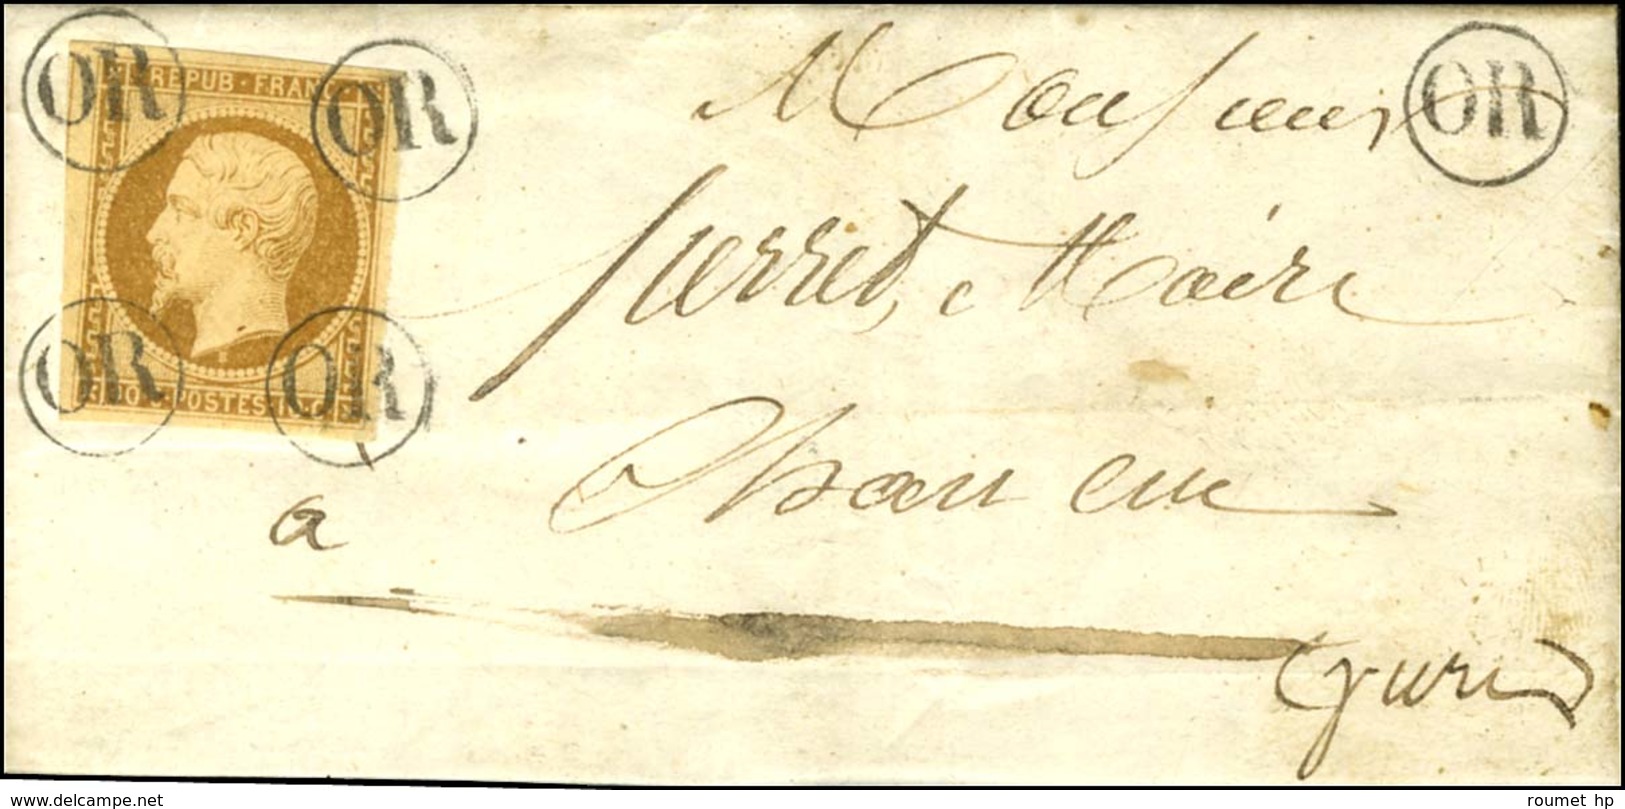 OR OR OR
REPUB · FRANC
Monsieur
Perret, Maire
OR OR
10 c. POSTES 10 c.
à Chancia
(jura)
www.delcampe.net
roumet hp